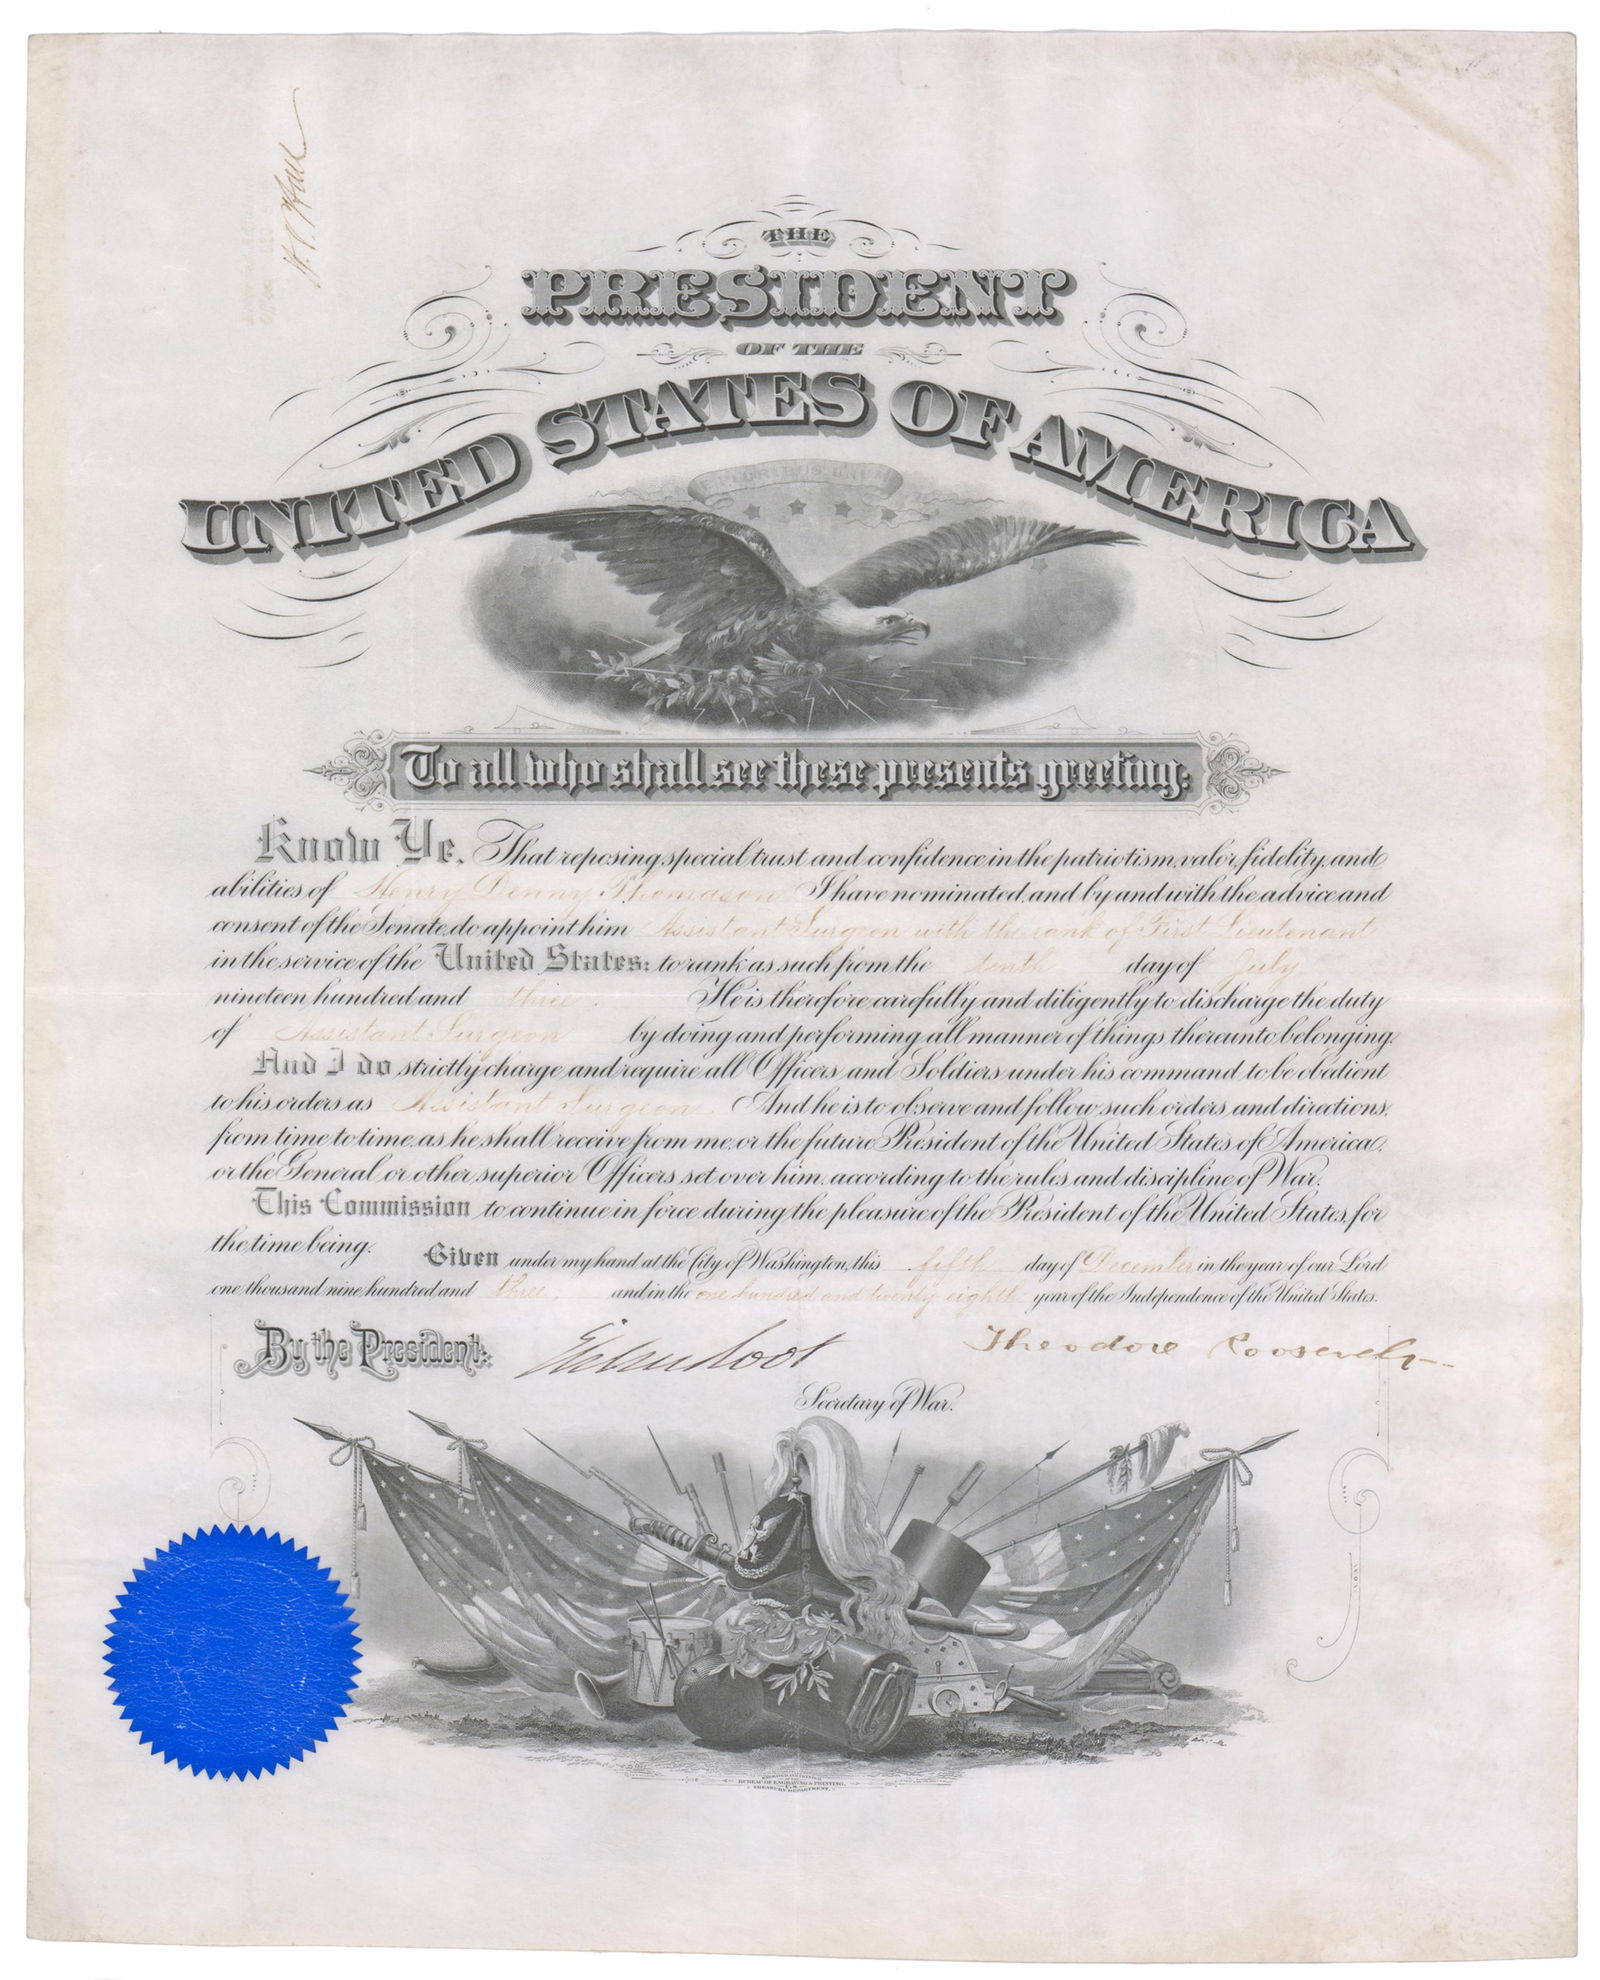 H.P. Hall
THE
PRESIDENT
OF THE
UNITED STATES OF AMERICA
E PLURIBUS UNUM
To all who shall see these presents greeting:
Know Ye, That reposing special trust and confidence in the patriotism, valor, fidelity, and
abilities of Henry Denny Thomason I have nominated, and by and with the advice and
consent of the Senate, do appoint him Assistant Surgeon with the rank of First Lieutenant
in the service of the United States: to rank as such from the tenth day of July
nineteen hundred and three. He is therefore carefully and diligently to discharge the duty
of Assistant Surgeon by doing and performing all manner of things thereunto belonging.
And I do strictly charge, and require all Officers and Soldiers under his command to be obedient
to his orders as Assistant Surgeon. And he is to observe and follow such orders, and directions,
from time to time, as he shall receive from me, or the future President of the United States of America,
or the General or other superior Officers set over him, according to the rules and discipline of War.
This Commission to continue in force during the pleasure of the President of the United States, for
the time being.
Given under my hand at the City of Washington, this fifth day of December in the year of our Lord
one thousand nine hundred and three, and in the one hundred and twenty eighth year of the Independence of the United States.
By the President: Elihu Root Theodore Roosevelt
Secretary of War.
BUREAU OF ENGRAVING & PRINTING,
U.S.
TREASURY DEPARTMENT.